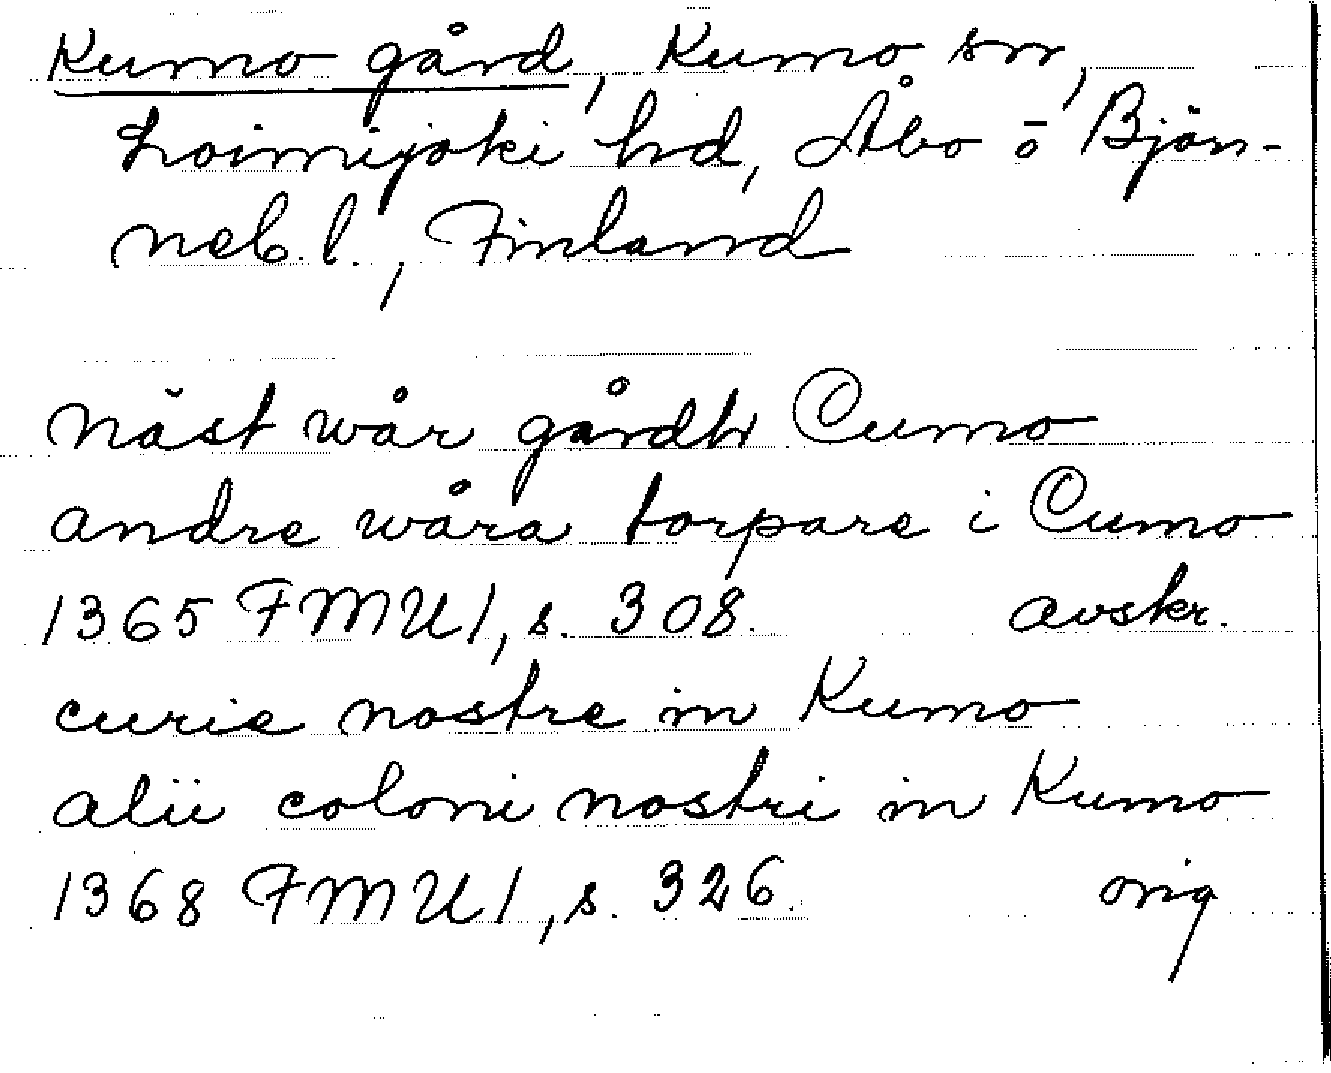 Kumo gård, Kumo sn,
Loimijoki hd, Åbo o Björ-
neb. l., Finland
näst wår gårdh Cumo
andre wåra torpare i Cumo
1365 FMU 1, s. 308. avskr.
curie nostre in Kumo
alii coloni nostri in Kumo
1368 FMU 1, s. 326. orig